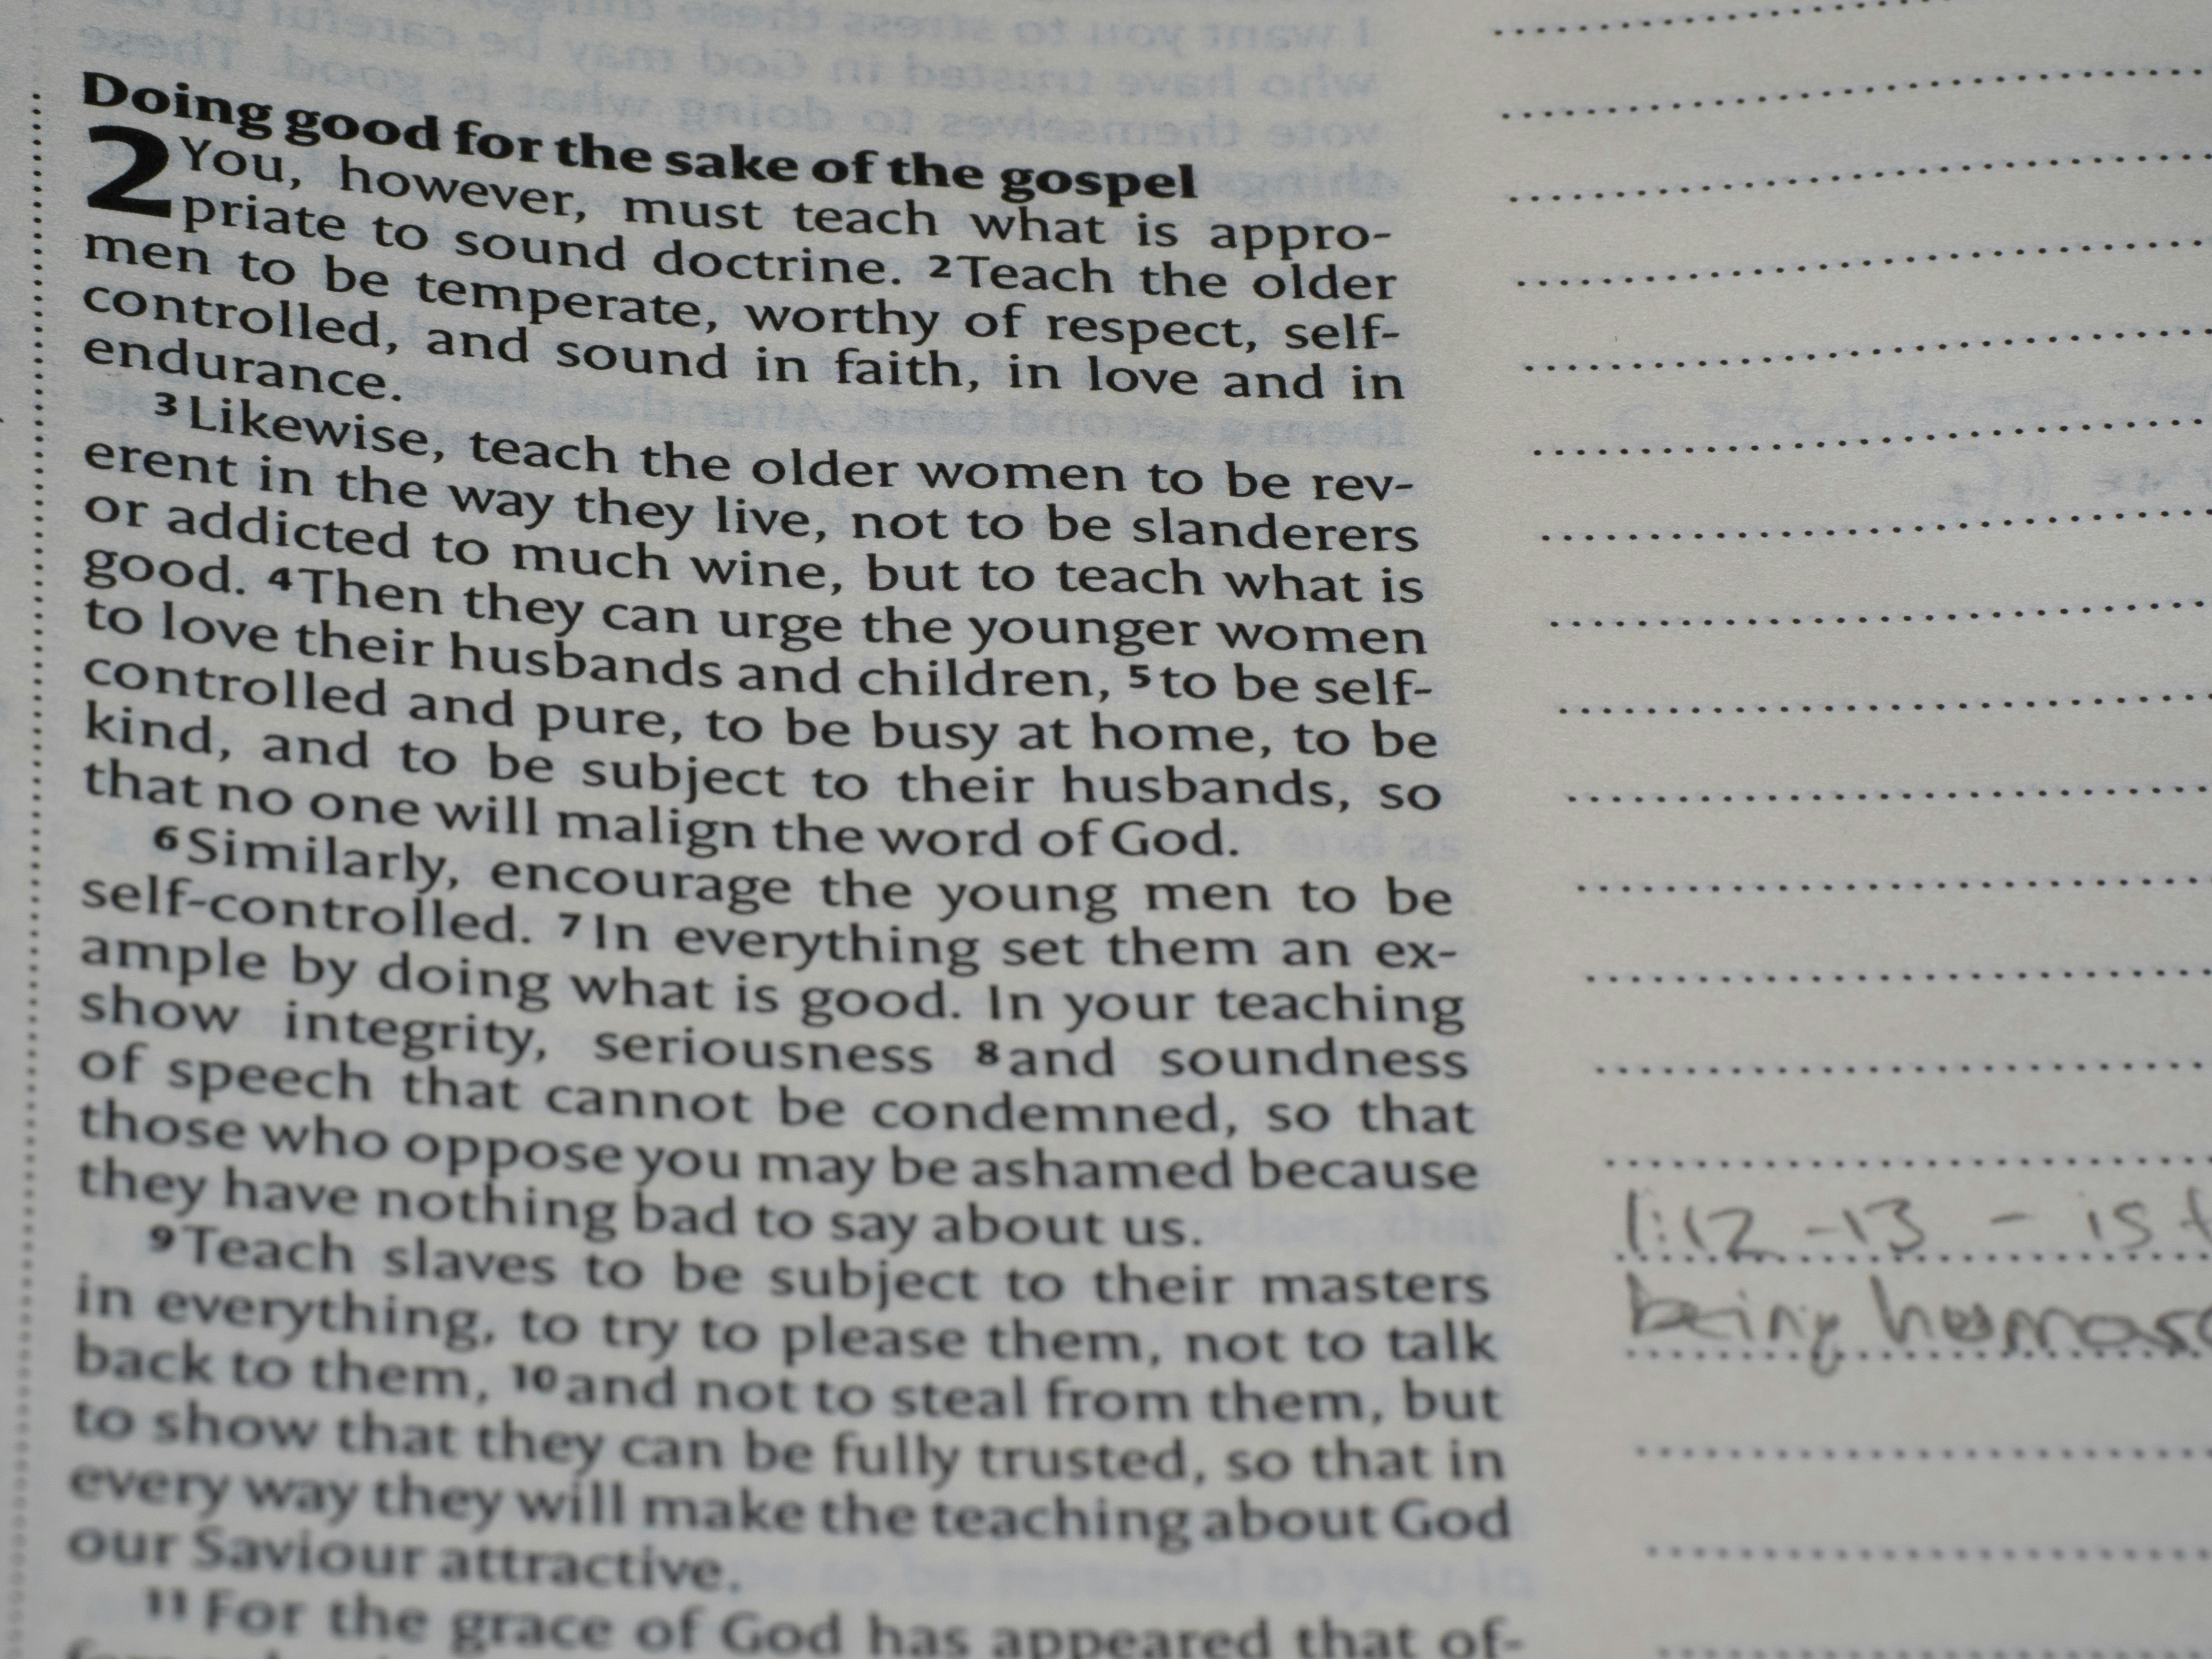 Doing good for the sake of the gospel
2 You, however, must teach what is appro-
priate to sound doctrine. 2 Teach the older
men to be temperate, worthy of respect, self-
controlled, and sound in faith, in love and in
endurance.
3 Likewise, teach the older women to be rev-
erent in the way they live, not to be slanderers
or addicted to much wine, but to teach what is
good. 4 Then they can urge the younger women
to love their husbands and children, 5 to be self-
controlled and pure, to be busy at home, to be
kind, and to be subject to their husbands, so
that no one will malign the word of God.
6 Similarly, encourage the young men to be
self-controlled. 7 In everything set them an ex-
ample by doing what is good. In your teaching
show integrity, seriousness 8 and soundness
of speech that cannot be condemned, so that
those who oppose you may be ashamed because
they have nothing bad to say about us.
9 Teach slaves to be subject to their masters
in everything, to try to please them, not to talk
back to them, 10 and not to steal from them, but
to show that they can be fully trusted, so that in
every way they will make the teaching about God
our Saviour attractive.
11 For the grace of God has appeared that of-
1:12-13 - is
being